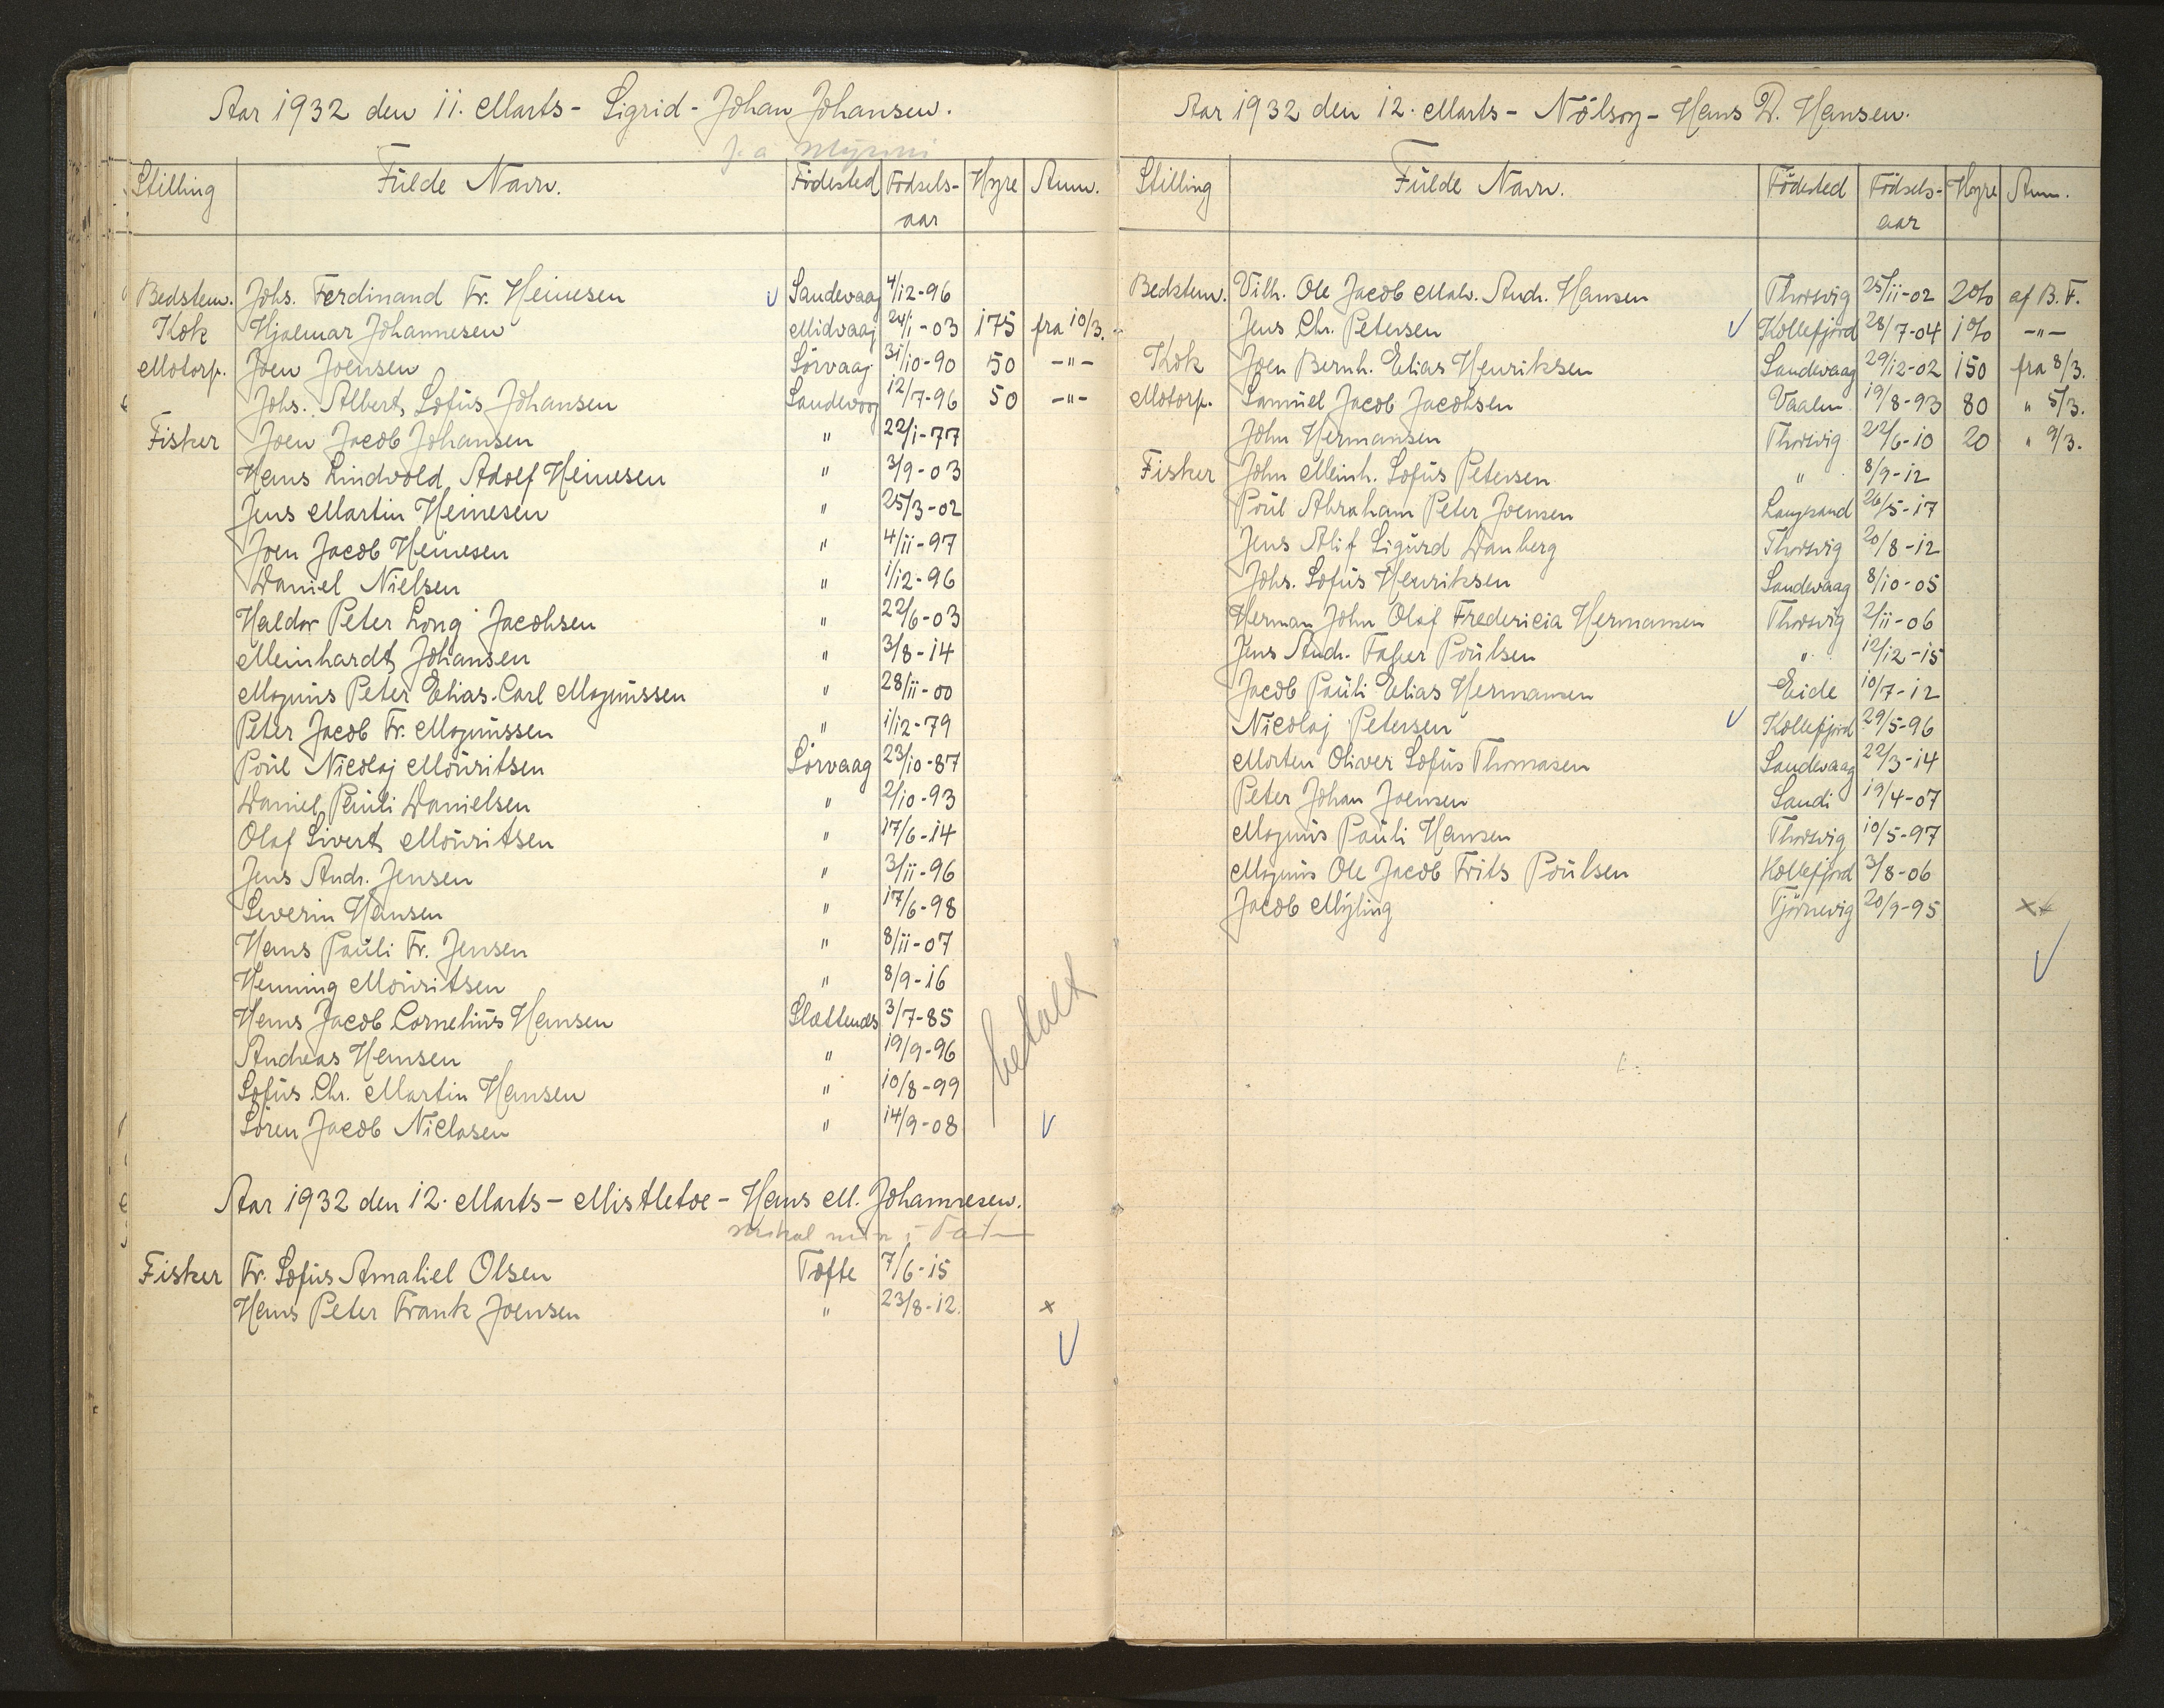 Aar 1932 den 11. Marts - Sigrid - Johan Johansen.
Stilling Fulde Navn. Födested Födsels-aar Hyre Anm.
Bedstem. Johs. Ferdinand Fr. Heinesen Sandevaag 4/12-96
Kok Hjalmar Johannesen Midvaag 24/1-03 175 fra 10/3.
Motorp. Joen Joensen Sörvaag 31/10-90 50 -"-
Johs. Albert Sofus Johansen Sandevaag 12/7-96 50 -"-
Fisker Joen Jacob Johansen " 22/1-77
Hans Lindvold Adolf Heinesen " 3/9-03
Jens Martin Heinesen " 25/3-02
Joen Jacob Heinesen " 4/11-97
Daniel Nielsen " 1/12-96
Haldor Peter Long Jacobsen " 22/6-03
Meinhardt Johansen " 3/8-14
Magnus Peter Elias Carl Magnussen " 28/11-00
Peter Jacob Fr. Magnussen " 1/12-79
Poul Nicolaj Mouritsen Sörvaag 23/10-87
Daniel Pauli Danielsen " 2/10-93
Olaf Sivert Mouritsen " 17/6-14
Jens Andr. Jensen " 3/11-96
Severin Hansen " 17/6-98
Hans Pauli Fr. Jensen " 8/11-07
Henning Mouritsen " 8/9-16
Hans Jacob Cornelius Hansen Slættenæs 3/7-85
Andreas Hansen " 19/9-96
Sofus Chr. Martin Hansen " 10/8-99
Sören Jacob Niclasen " 14/9-08
betalt
Aar 1932 den 12. Marts - Mistletoe - Hans M. Johannesen.
Fisker Fr. Sofus Amaliel Olsen Tofte 7/6-15
Hans Peter Frank Joensen " 23/8-12. x
Aar 1932 den 12. Marts - Nölsoy - Hans D. Hansen.
Stilling Fulde Navn. Födested Födsels-aar Hyre Anm.
Bedstem. Vilh. Ole Jacob Malv. Andr. Hansen Thorsvig 25/11-02 2% af B.F.
Jens Chr. Petersen Kollefjord 28/7-04 1% -"-
Kok Joen Bernh. Elias Henriksen Sandevaag 29/12-02 150 fra 8/3.
Motorp. Samuel Jacob Jacobsen Vaalen 19/8-93 80 " 5/3.
John Hermansen Thorsvig 22/6-10 20 " 9/3.
Fisker John Meinh. Sofus Petersen " 8/9-12
Poul Abraham Peter Joensen Langesand 26/5-17
Jens Alif Sigurd Danberg Thorsvig 20/8-12
Johs. Sofus Henriksen Sandevaag 8/10-05
Herman John Olaf Fredericia Hermansen Thorsvig 2/11-06
Jens Andr. Poulsen " 12/12-15
Jacob Pauli Elias Hermansen Eide 10/7-12
Nicolaj Petersen Kollefjord 29/5-96
Morten Oliver Sofus Thomasen Sandevaag 22/3-14
Peter Johan Joensen Sandi 19/4-07
Magnus Pauli Hansen Thorsvig 10/5-97
Magnus Ole Jacob Frits Poulsen Kollefjord 3/8-06
Jacob Mýling Tjörnevig 20/9-95 xx